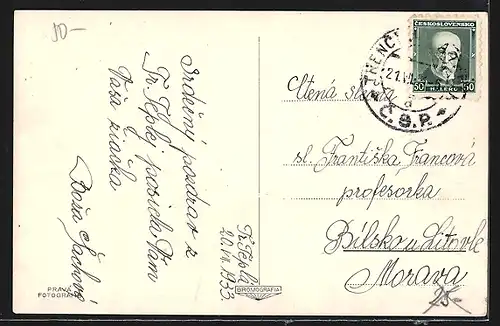 10-
Srdečný pozdrav z
Tr. Teplej posiela Vám
Vaša žiačka
Boža
Tr. Teplá
20.VII.1933.
PRAVÁ
FOTOGRAFIA
BROMOGRAFIA
ČESKOSLOVENSKO
50 HALÉŘŮ 50
TRENČ
21.VII.
Č.S.R.
Ctená slečna
sl. Františka Francová
profesorka
Bílsko u Litovle
Morava
25.-